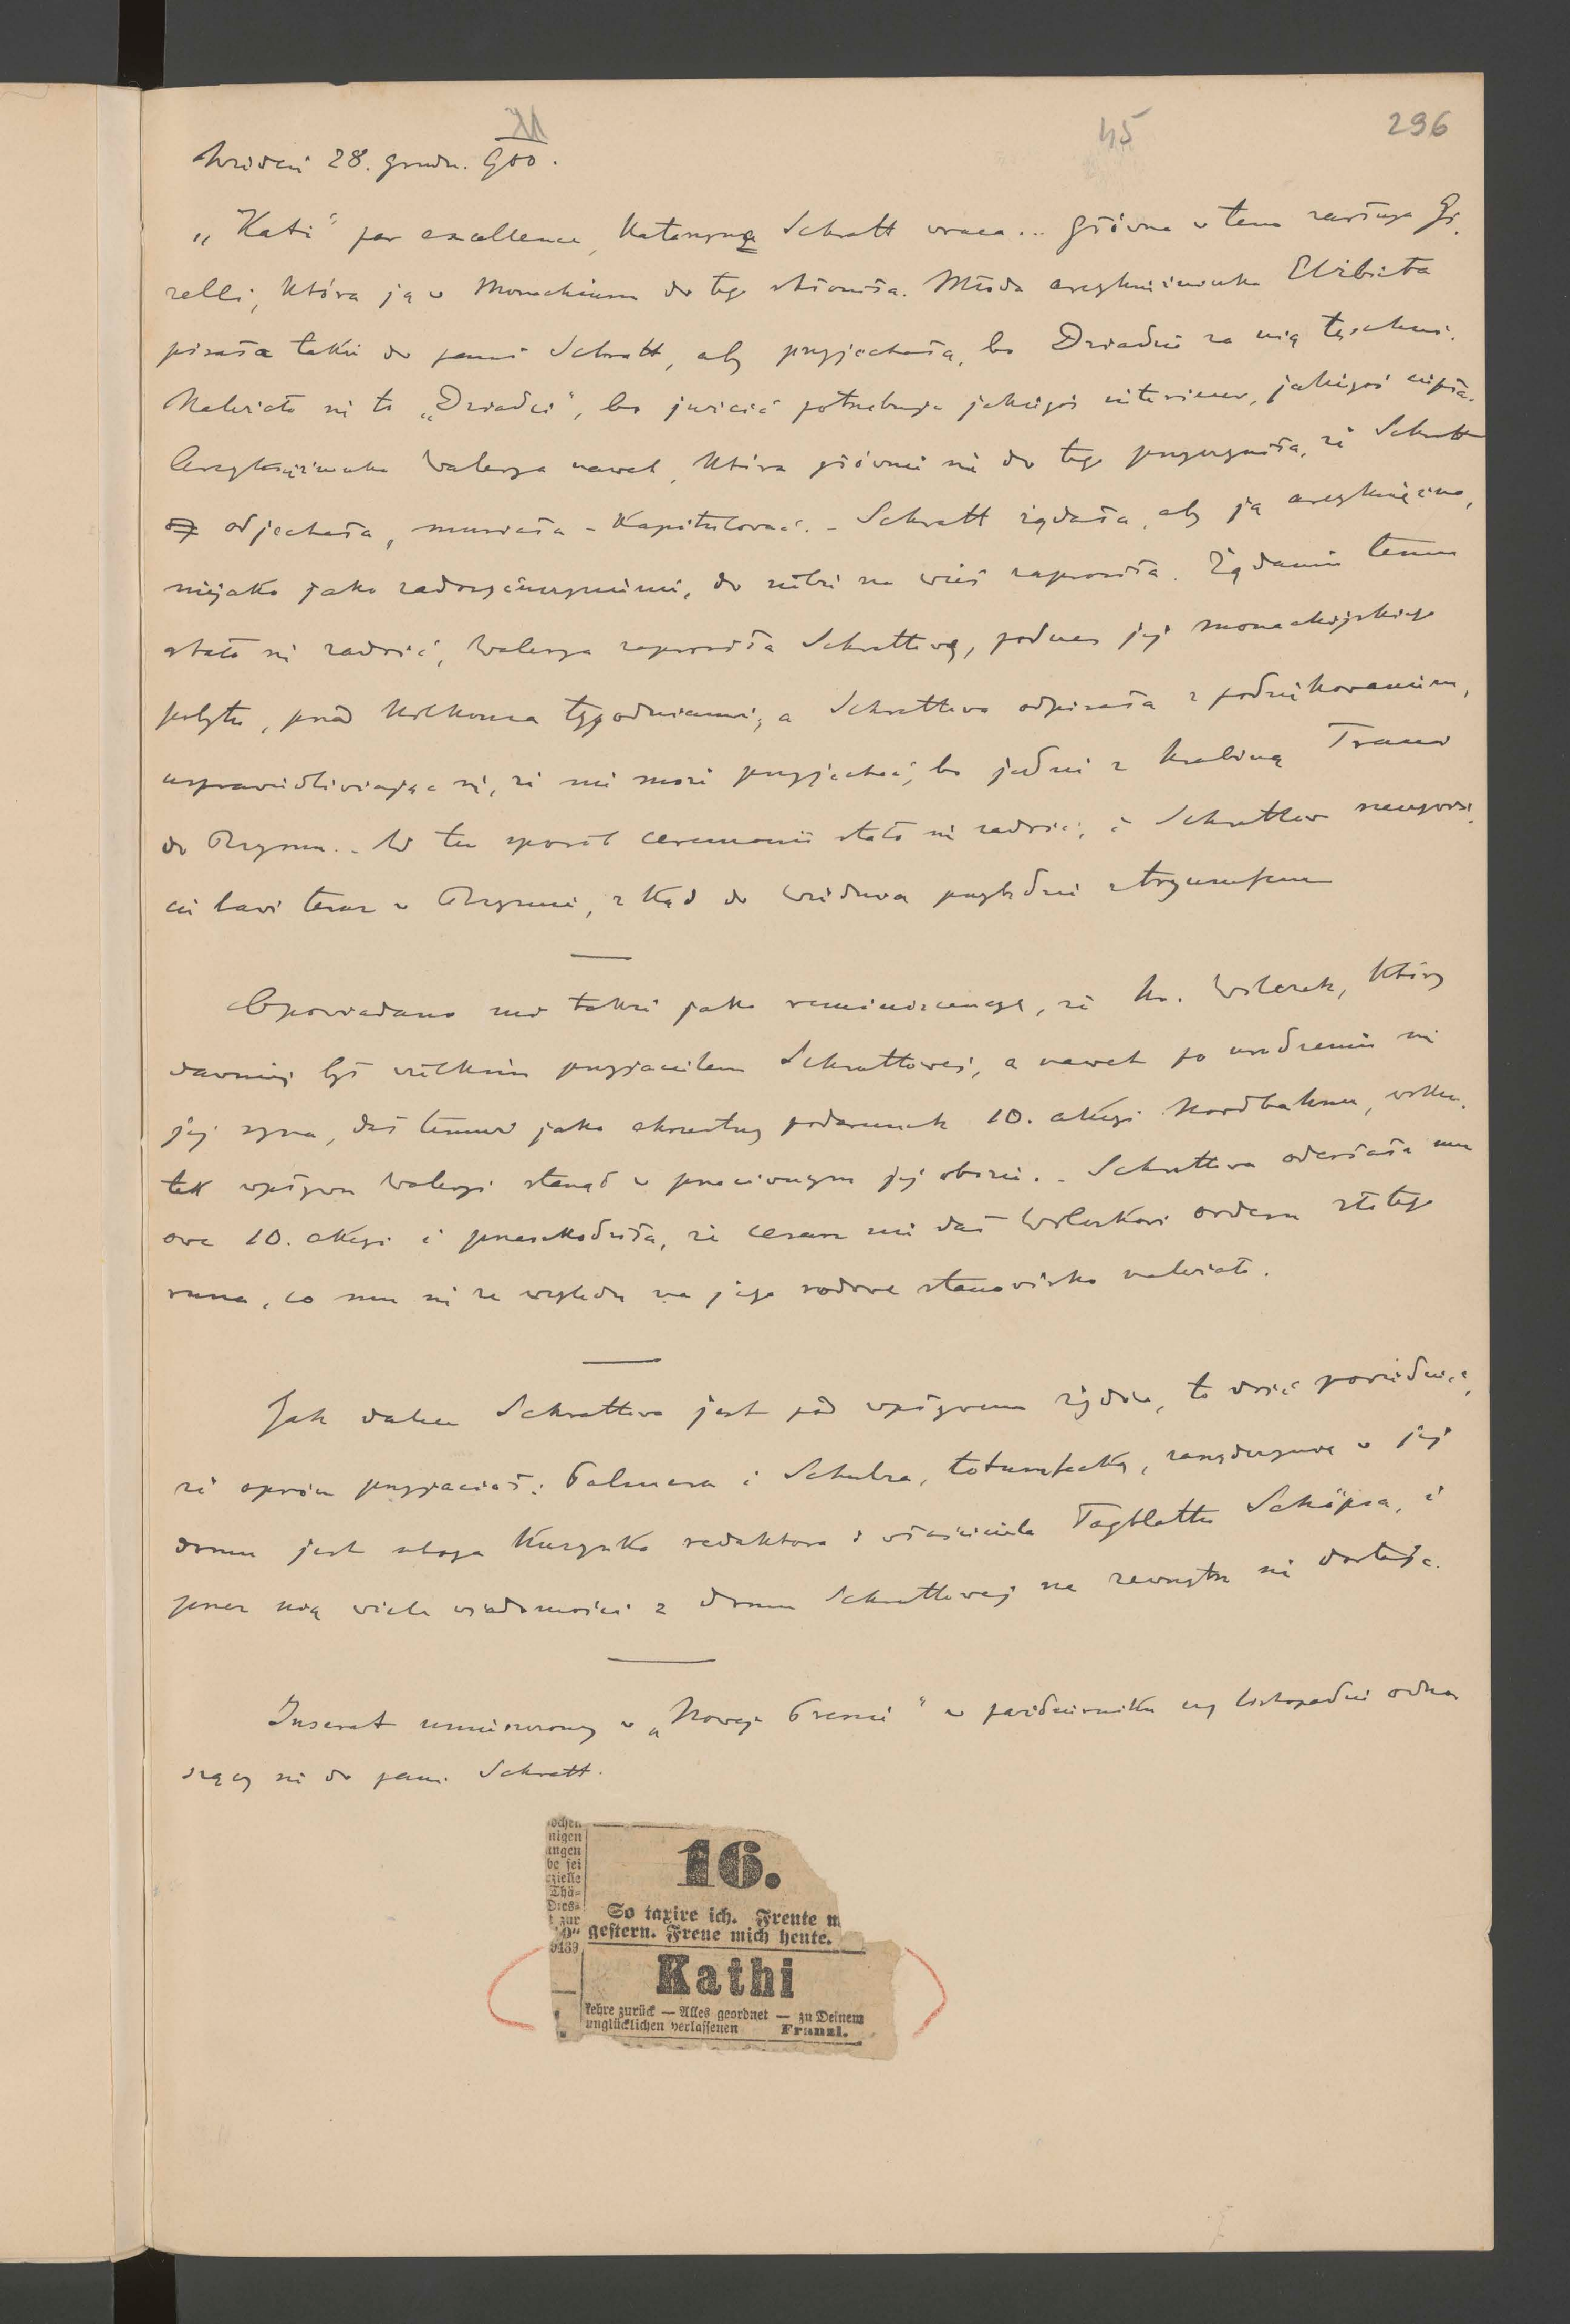 XII
45
296
Wiedeń 28. grudn. 900.
„Kati" par excellence, Katarzyna Schratt wraca... Główna w tem zasługa Gi-
zelli, która ją w Monachium do tego skłoniła. Młoda arcyksiężniczka Elżbieta
pisała także do pani Schratt, aby przyjechała, bo Dziadzio za nią tęskni.
Należało się to „Dziadzi", bo przecież potrzebuje jakiegoś interieur, jakiegoś ciepła.
Arcyksiężniczka Walerya nawet, która głównie się do tego przyczyniła, że Schratt
odjechała, musiała – kapitulować. – Schratt żądała, aby ją arcyksiężna,
niejako jako zadosyćuczynienie, do siebie na wieś zaprosiła. Żądaniu temu
stało się zadość, Walerya zaprosiła Schrattową, podczas jej monachijskiego
pobytu, przed kilkoma tygodniami, a Schrattowa odpisała z podziękowaniem,
usprawiedliwiając się, że nie może przyjechać, bo jedzie z hrabiną Trani
do Rzymu. – W ten sposób ceremonii stało się zadość, i Schrattowa
bawi teraz w Rzymie, z kąd do Wiednia przybędzie z tryumfem
Opowiadano mi także jako reminiscencyę, że hr. Wilczek, który
dawniej był wielkim przyjacielem Schrattowej, a nawet po urodzeniu się
jej syna, dał temuż jako chrzestny podarunek 10. akcyi Nordbahnu, wsku-
tek wpływu Waleryi stanął w przeciwnym jej obozie. – Schrattowa odesłała mu
owe 10. akcyi i przeszkodziła, że cesarz nie dał Wilczkowi orderu złotego
runa, co mu się ze względu na jego rodowe stanowisko należało.
Jak dalece Schrattowa jest pod wpływem żydów, to dość powiedzieć,
że oprócz przyjaciół: Palmera i Schulza, totumfacką, zarządczynią w jej
domu jest uboga kuzynka redaktora i właściciela Tagblattu Schöpsa, i
przez nią wiele wiadomości z domu Schrattowej na zewnątrz się dostaje.
Inserat umieszczony w „Nowej Presse" w październiku czy listopadzie odno-
szący się do pani Schratt.
16.
So taxire ich. Freute m
gestern. Freue mich heute.
Kathi
kehre zurück — Alles geordnet — zu Deinem
unglücklichen verlassenen Franzl.